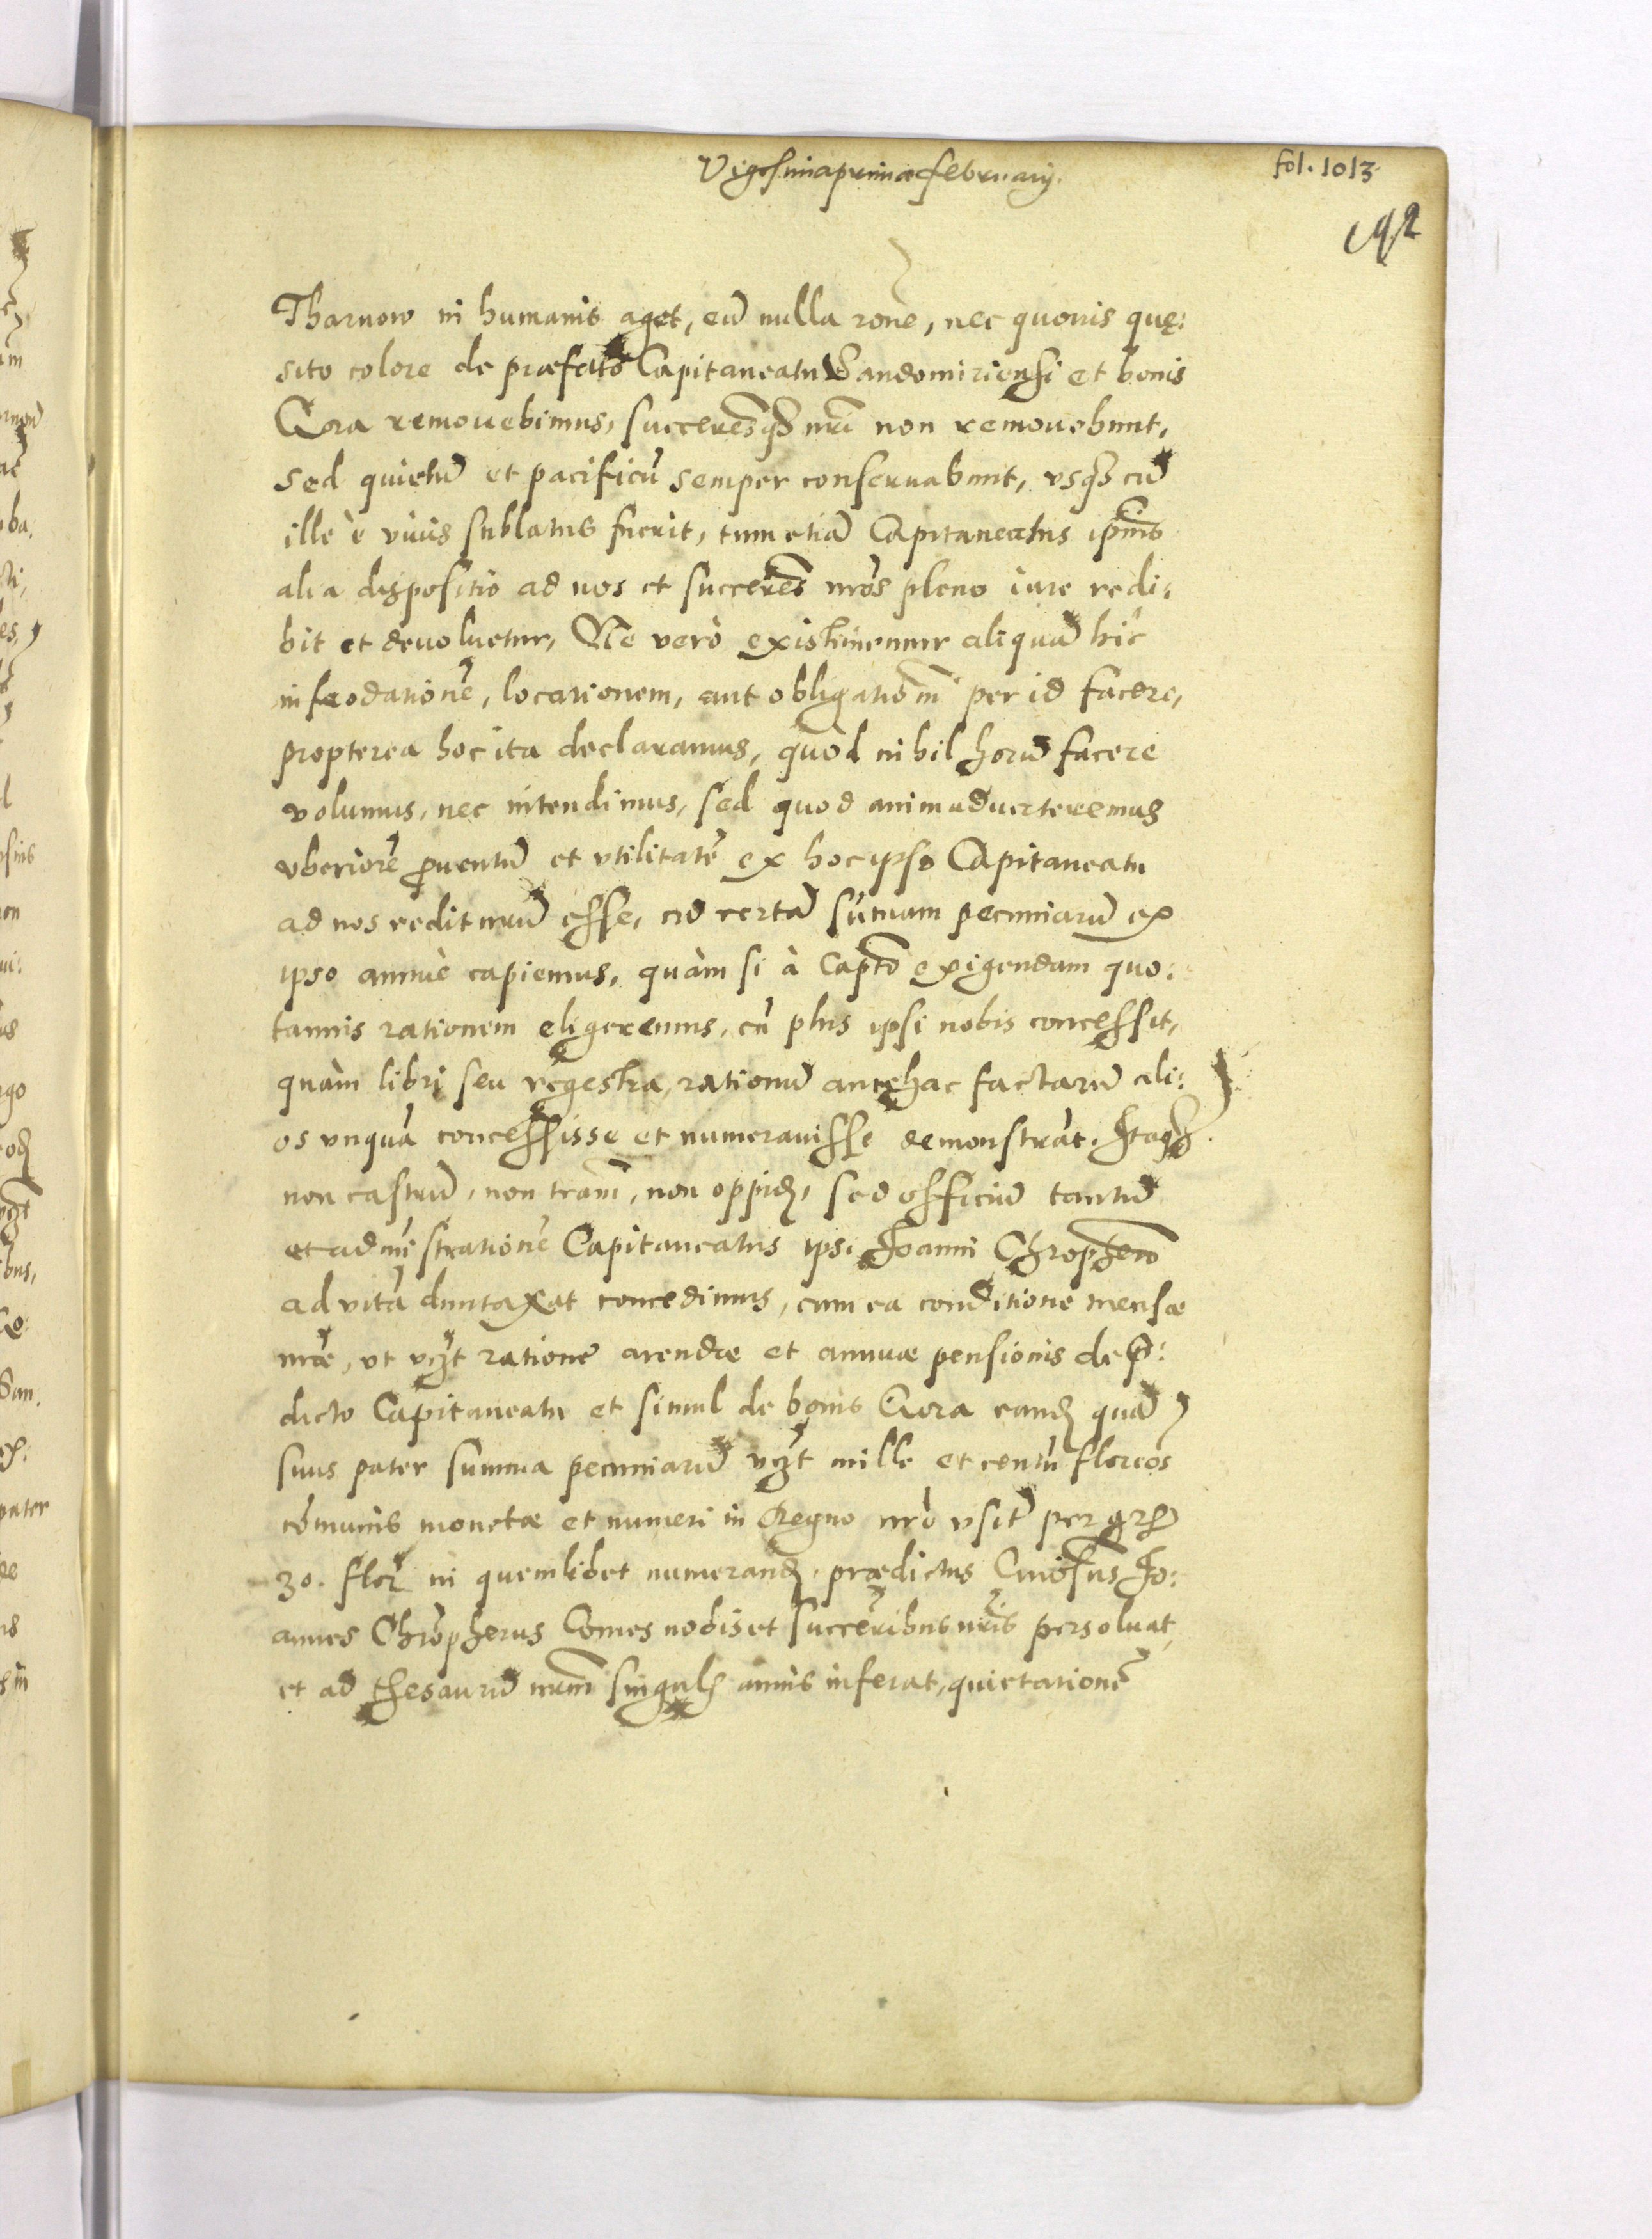 Vigesimaprima februarij.
fol. 1013.
192
Tharnow in humanis aget, eũ nulla rone, nec quouis quę:
sito colore de præfato Capitaneatu Sandomiriensi et bonis
Gora remouebimus, succeresq̃ nrĩ non remouebunt,
sed quietũ et pacificũ semper conseruabunt, vsq̃ cũ
ille è viuis sublatus fuerit, tum etiã Capitaneatus ipsius
alia dispositio ad nos et succeres nrõs pleno iure redi:
bit et deuoluetur, Ne verò existimemur aliquã hîc
infeodationẽ, locationem, aut obligationem per id facere,
propterea hoc ita declaramus, quod nihil horũ facere
volumus, nec intendimus, sed quod animaduerteremus
vberiorẽ prouentũ et vtilitatẽ ex hoc ipso Capitaneatu
ad nos rediturũ esse, cũ certã sũmam pecuniarũ ex
ipso annuè capiemus, quàm si à Captõ exigendam quo:
tannis rationem eligeremus, cũ plus ipsi nobis concessit,
quàm libri seu regestra, rationũ antehac factarũ ali:
os vnquã concessisse et numerauisse demonstrãt. Itaq̃
non castrũ, non trãm, non oppid, sed officiũ tantũ
et administrationẽ Capitaneatus ipsi Joanni Chrophero
ad vitã duntaxat concedimus, cum ea conditione mensæ
nrãe, vt vczt ratione arendæ et annuæ pensionis de p̃:
dicto Capitaneatu et simul de bonis Gora eand quã
suus pater summa pecuniarũ vczt mille et centũ floreos
cõmunis monetæ et numeri in Regno nrõ vsit per gr
30. flor in quemlibet numerand, prædictus Gnosus Jo:
annes Chropherus Comes nobis et succeribus nrĩs persoluat,
et ad thesaurũ nrũm singul annis inferat, quietationẽ